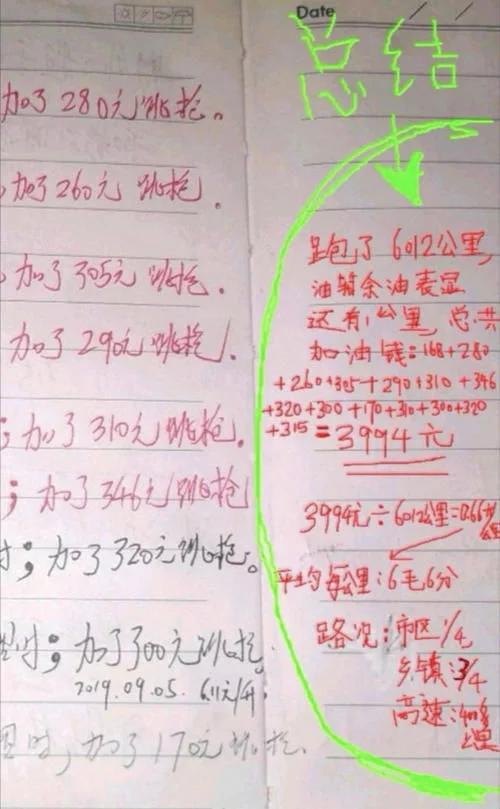 加了280元跳枪。
加了260元跳枪。
加了305元跳枪.
加了290元跳枪.
;加了310元跳枪.
;加了346元跳枪
;加了320元跳枪。
时;加了300元跳枪.
2019.09.05. 6.11元/升
时,加了170元跳枪.
Date
总结
跑了6012公里,
油箱余油表显
还有1公里,总共
加油钱:168+280
+260+305+290+310+346
+320+300+170+310+300+320
+315=3994元
3994元÷6012公里=0.66
平均每公里:6毛6分
路况:市区1/4
乡镇:3/4
高速:400多
公里